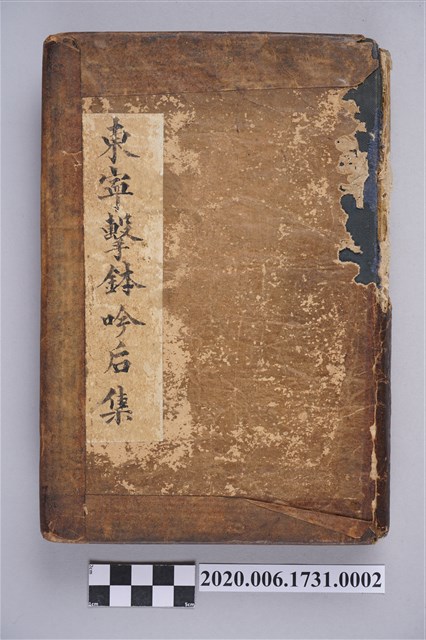 東寧擊鉢吟后集
2020.006.1731.0002